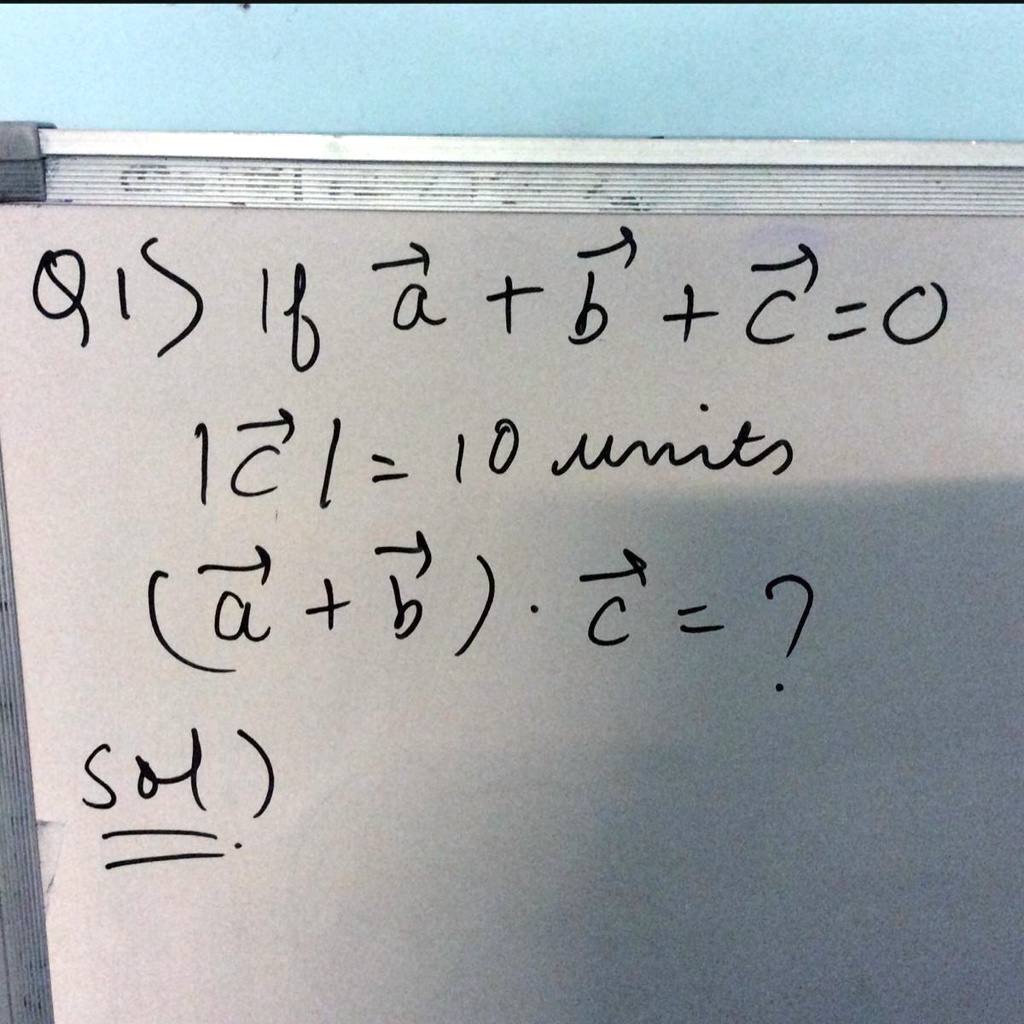 Q1) If a⃗ + b⃗ + c⃗ = 0
|c⃗| = 10 units
(a⃗ + b⃗) · c⃗ = ?
Sol)